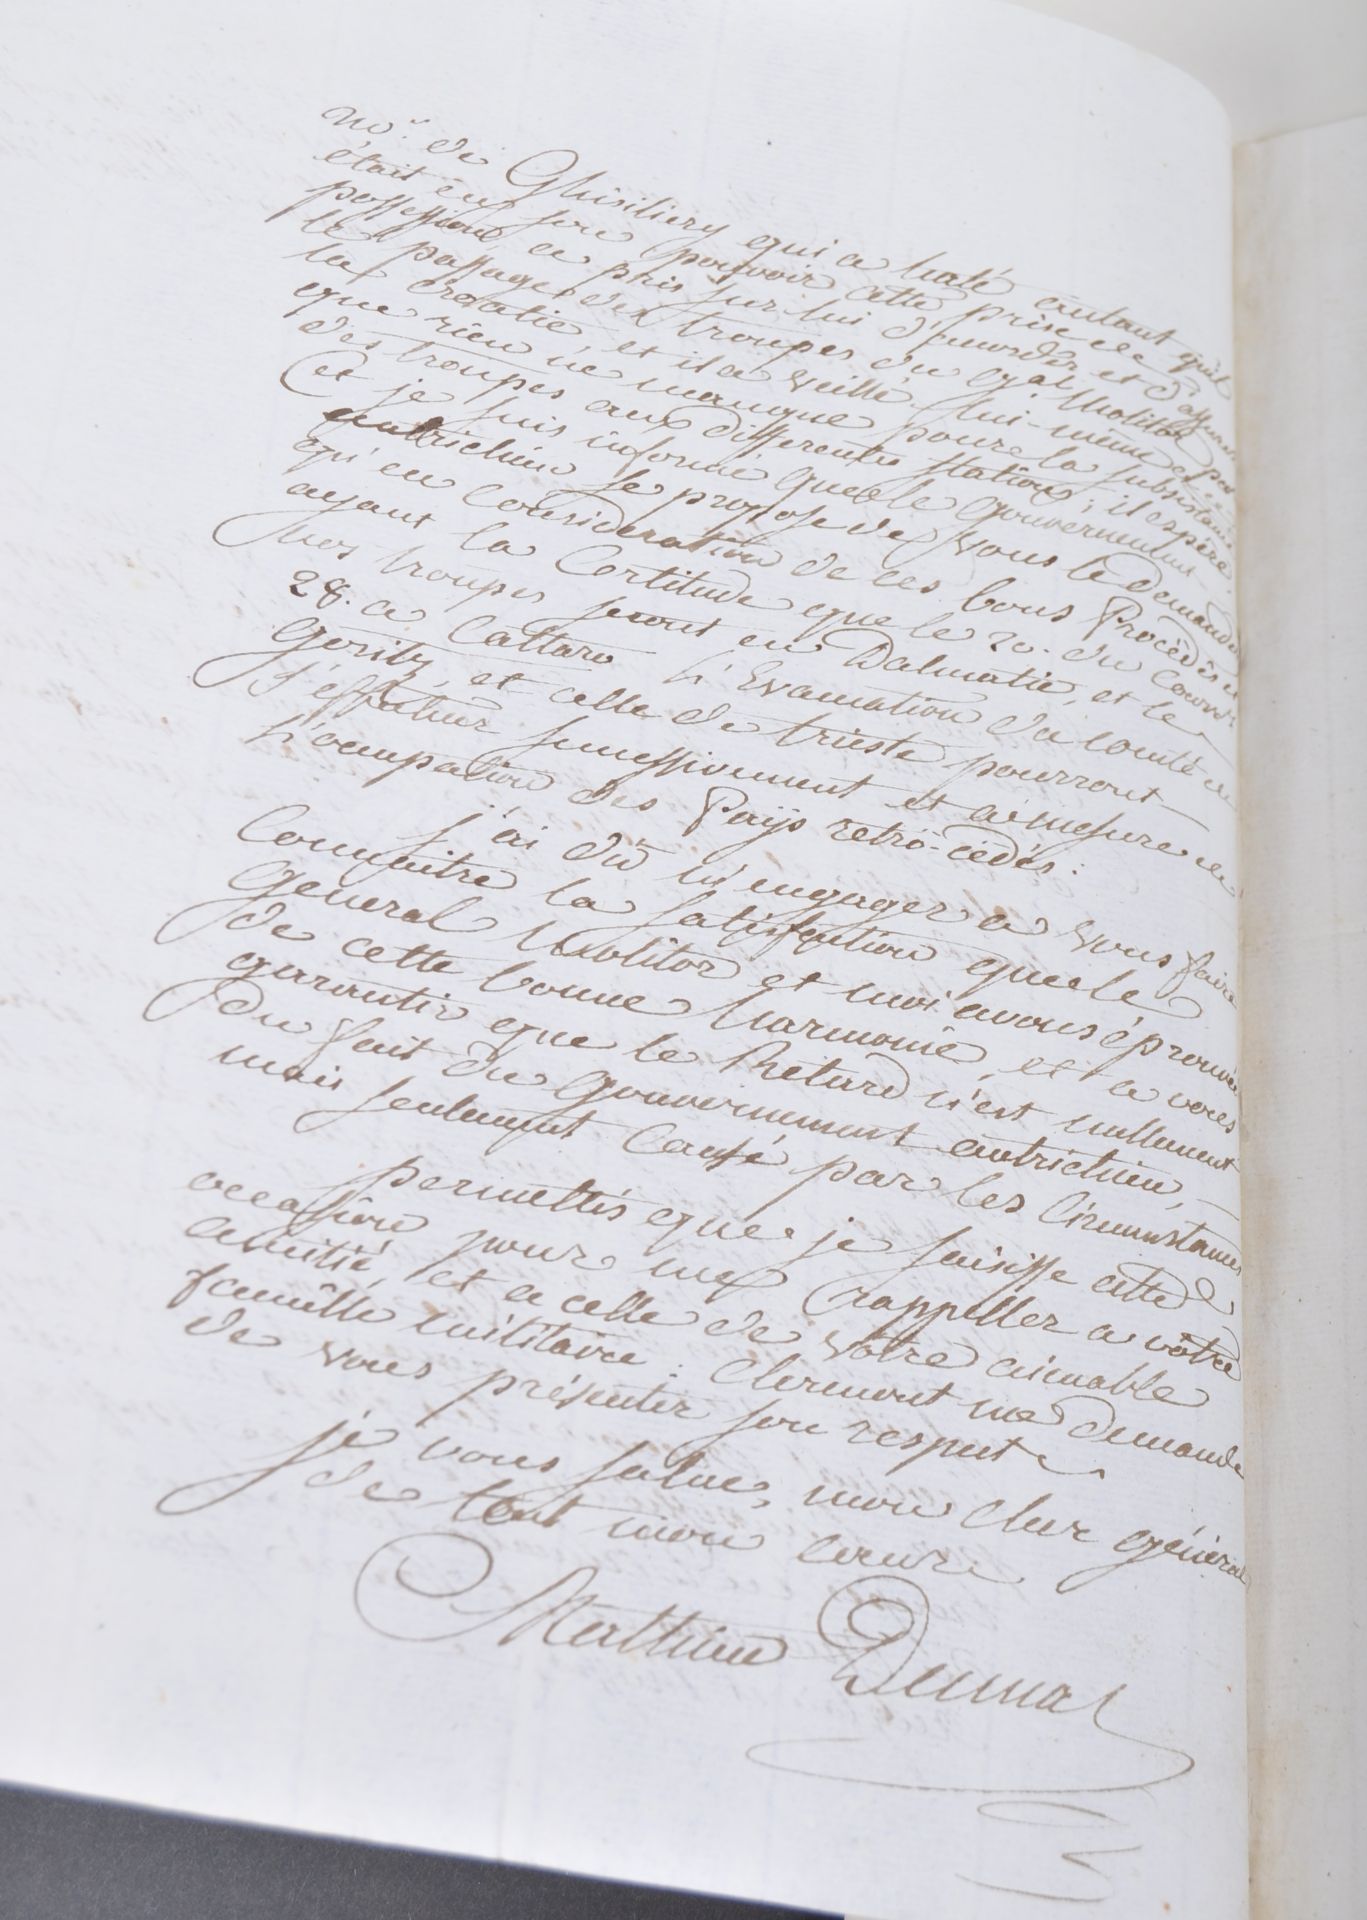 Mr. de Ghisiliery qui a hâté autant qu'il
était en son pouvoir cette prise de
possession, a pris sur lui d'accorder et d'assurer
le passage des troupes du gal. Molitor par
la Croatie et il a veillé lui-même à ce
que rien ne manque pour la subsistance
des troupes aux differentes stations; il espère
et je suis informé que le gouvernement
autrichien se propose de vous le demander
qu'en consideration de ces bons Procédés et
ayant la Certitude que le 20. du Courrt
nos troupes seront en Dalmatie, et le
28. a Cattaro L'Evacuation du Comté de
Gority, et celle de trieste pourront
s'effectuer successivement et à mesure de
L'occupation des Païs retro-cédés.
j'ai dû m'engager a vous faire
Connaitre la satisfaction que le
General Molitor et moi avons éprouvée
de cette bonne harmonie, et a vous
garantir que le Retard n'est nullement
du fait du gouvernement autrichien,
mais seulement Causé par les Circonstances
permettés que je saisisse cette
occasion pour me rappeller a votre
amitié, et a celle de votre aimable
famille militaire. Clermont me demande
de vous présenter son respect.
je vous salue, mon cher général
de tout mon coeur.
Mathieu Dumas